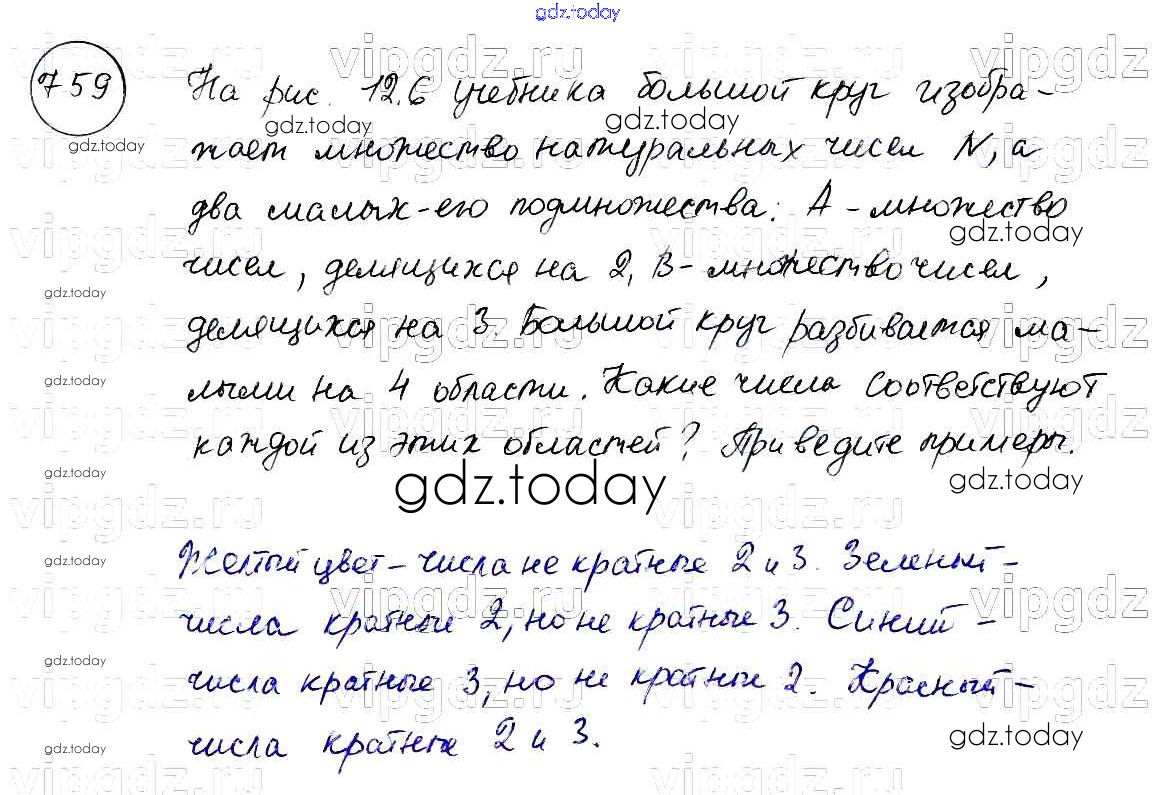 gdz.today
759 На рис. 12.6 учебника большой круг изобра-
жает множество натуральных чисел N, а
два малых - его подмножества: A - множество
чисел, делящихся на 2, B - множество чисел,
делящихся на 3. Большой круг разбивается ма-
лыми на 4 области. Какие числа соответствуют
каждой из этих областей? Приведите примеры.
gdz.today
Желтый цвет - числа не кратные 2 и 3. Зеленый -
числа кратные 2, но не кратные 3. Синий -
числа кратные 3, но не кратные 2. Красный -
числа кратные 2 и 3.
gdz.today
vipgdz.ru